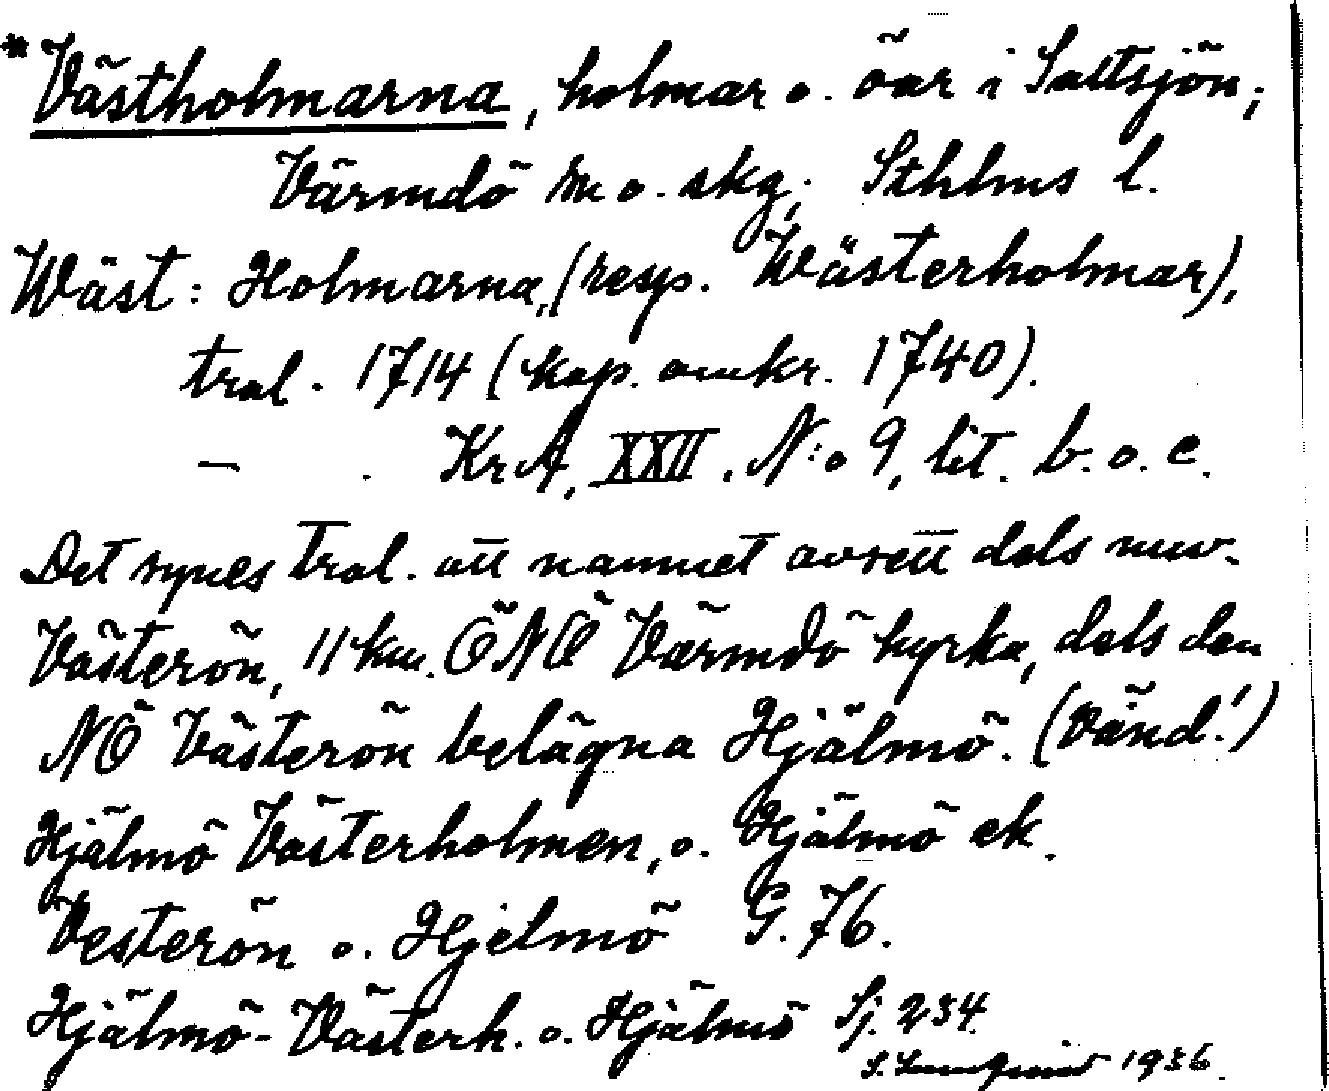 *Västholmarna, holmar o. öar i Saltsjön,
Värmdö sn o. skg; Sthlms l.
Wäst: Holmarna, (resp. Wästerholmar),
trol. 1714 (kop. omkr. 1740).
— . KrA, XXII. N:o 9, lit. b. o. c.
Det synes trol. att namnet avsett dels nuv.
Västerön, 11 km. ÖNÖ Värmdö kyrka, dels den
NÖ Västerön belägna Hjälmö. (Vänd!)
Hjälmö Västerholmen, o. Hjälmö ek.
Vesterön o. Hjelmö G. 76.
Hjälmö-Västerh. o. Hjälmö Sj. 234.
S. 1936.